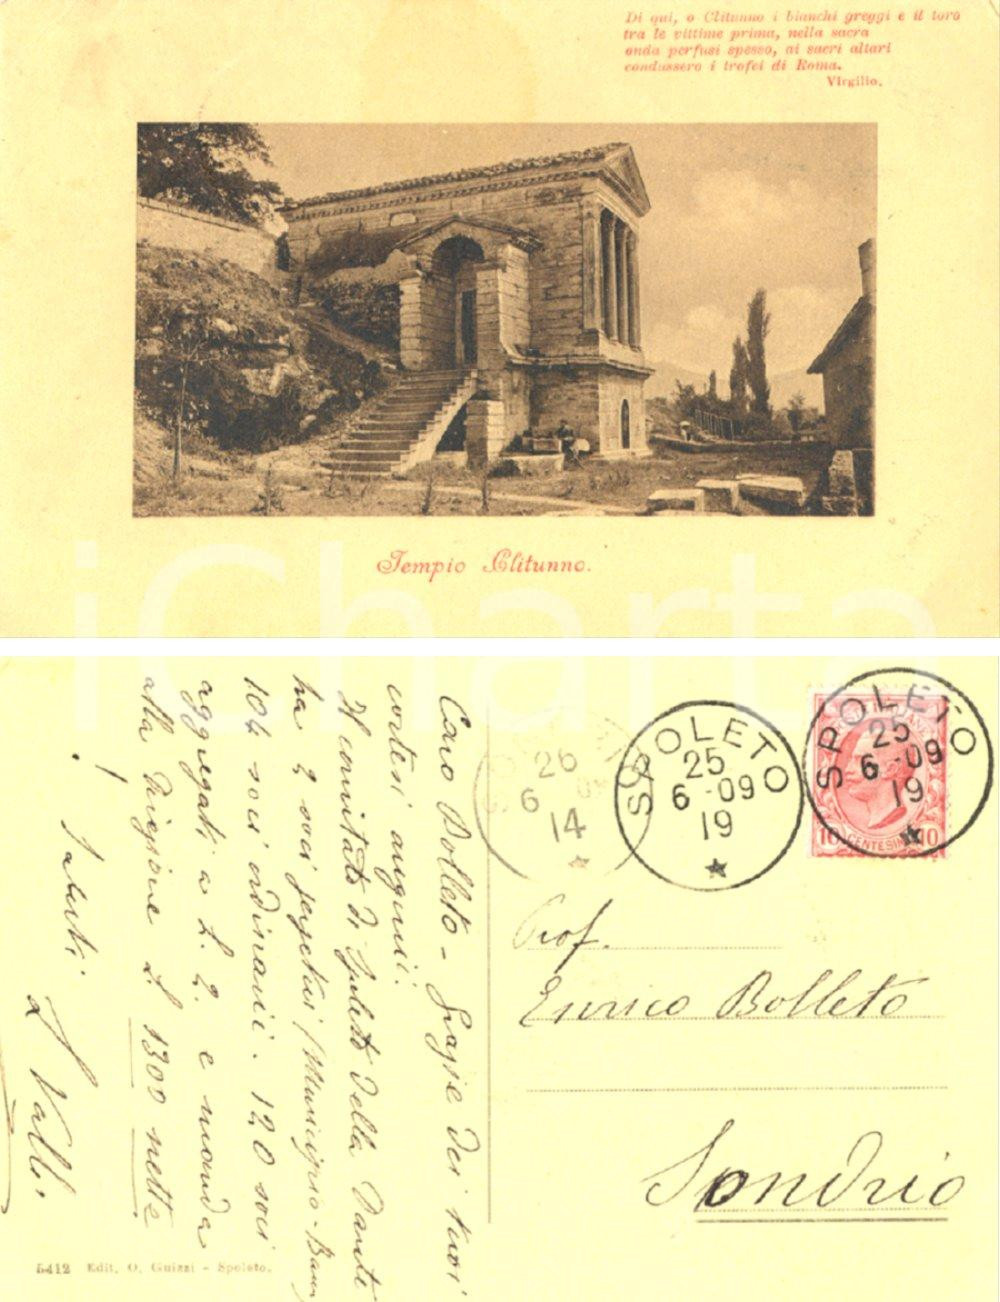 Di qui, o Clitunno i bianchi greggi e il toro
tra le vittime prima, nella sacra
onda perfusi spesso, ai sacri altari
condussero i trofei di Roma.
Virgilio.
Tempio Clitunno.
iCharta
SPOLETO
25
6-09
19
SPOLETO
25
6-09
19
26
6 09
14
10 CENTESIMI 10
Prof.
Enrico Bolleto
Sondrio
Caro Bolleto - Grazie dei tuoi
cortesi auguri.
Il comitato di Spoleto della Dante
ha 2 soci perpetui (Municipio - Banca
104 soci ordinarii. 120 soci
aggregati a L. 2. e manda
alla Direzione L. 1300 nette
! Saluti.
Valli.
5412 Edit. O. Guizzi - Spoleto.